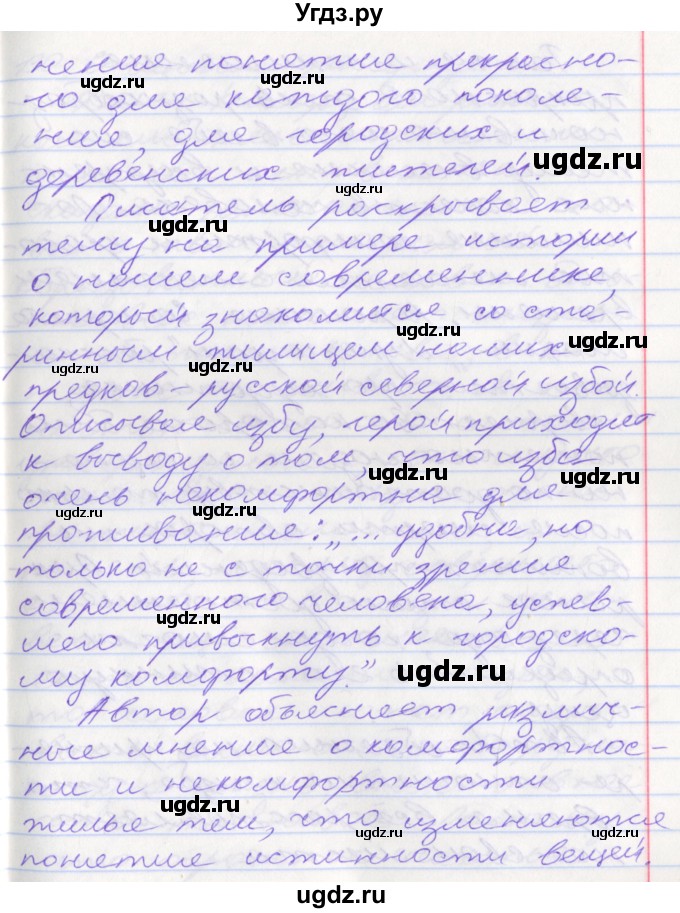 Угдз.ру
нения понятия прекрасно-
го для каждого поколе-
ния, для городских и
деревенских жителей.
Писатель раскрывает
тему на примере истории
о нашем современнике,
который знакомится со ста-
ринным жилищем наших
предков – русской северной избой.
Описывая избу, герой приходит
к выводу о том, что изба
очень некомфортна для
проживания: „... удобна, но
только не с точки зрения
современного человека, успев-
шего привыкнуть к городско-
му комфорту."
Автор объясняет различ-
ные мнения о комфортнос-
ти и некомфортности
жилья тем, что изменяются
понятия истинности вещей.
ugdz.ru